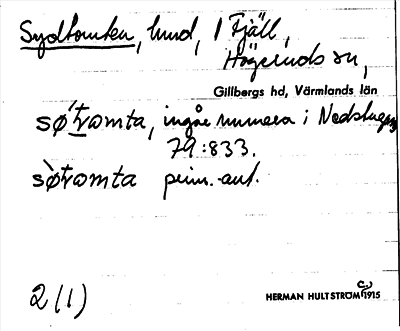 Sydtomten, hund, 1 Fjäll,
Högeruds sn,
Gillbergs hd, Värmlands län
søtωmta, ingår numera i
79:833.
søtωmta prim. aut.
2 (1)
HERMAN HULTSTRÖM C. 1915